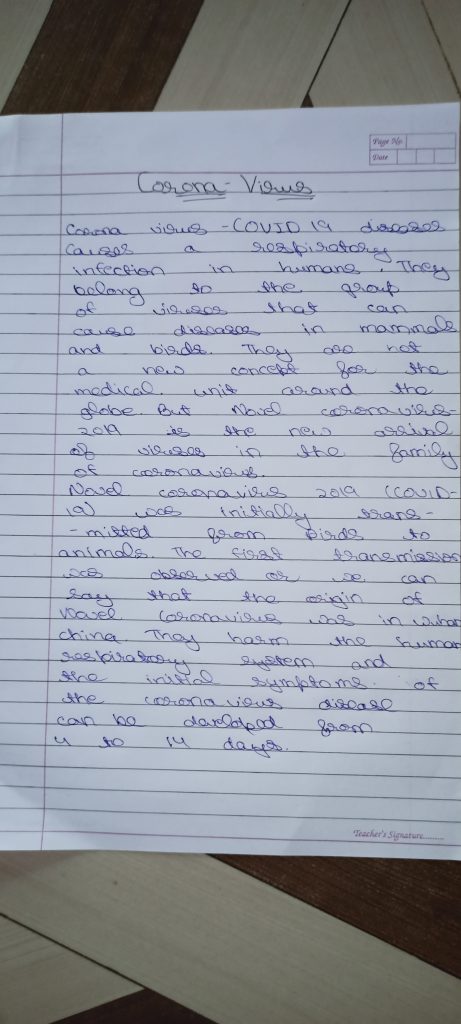 Page No.
Date
Corona-Virus
Corona virus - COVID 19 diseases
causes a respiratory
infection in humans. They
belong to the group
of viruses that can
cause diseases in mammals
and birds. They are not
a new concept for the
medical unit around the
globe. But Novel coronavirus-
2019 is the new arrival
of viruses in the family
of coronavirus.
Novel coronavirus 2019 (COVID-
19) was initially trans-
-mitted from birds to
animals. The first transmission
was observed or we can
say that the origin of
Novel coronavirus was in
china. They harm the human
respiratory system and
the initial symptoms of
the coronavirus disease
can be from
4 to 14 days.
Teacher's Signature.........